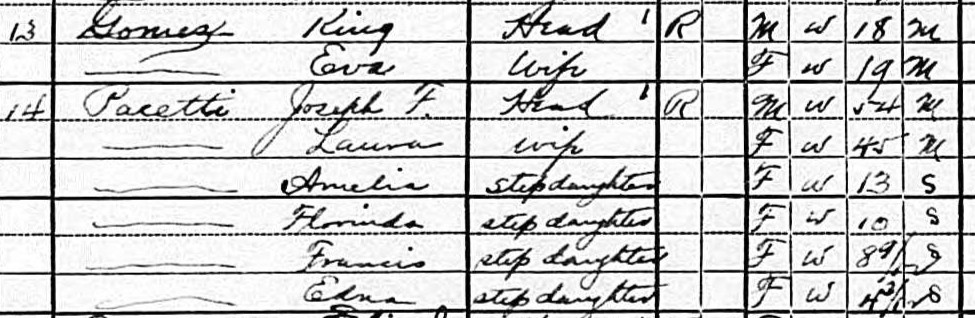 13 Gomez King Head 1 R M W 18 M
Eva Wife F W 19 M
14 Pacetti Joseph F. Head 1 R M W 54 M
Laura Wife F W 45 M
Amelia stepdaughter F W 13 S
Florinda stepdaughter F W 10 S
Francis step daughter F W 8 9/12 S
Edna stepdaughter F W 4 3/12 S